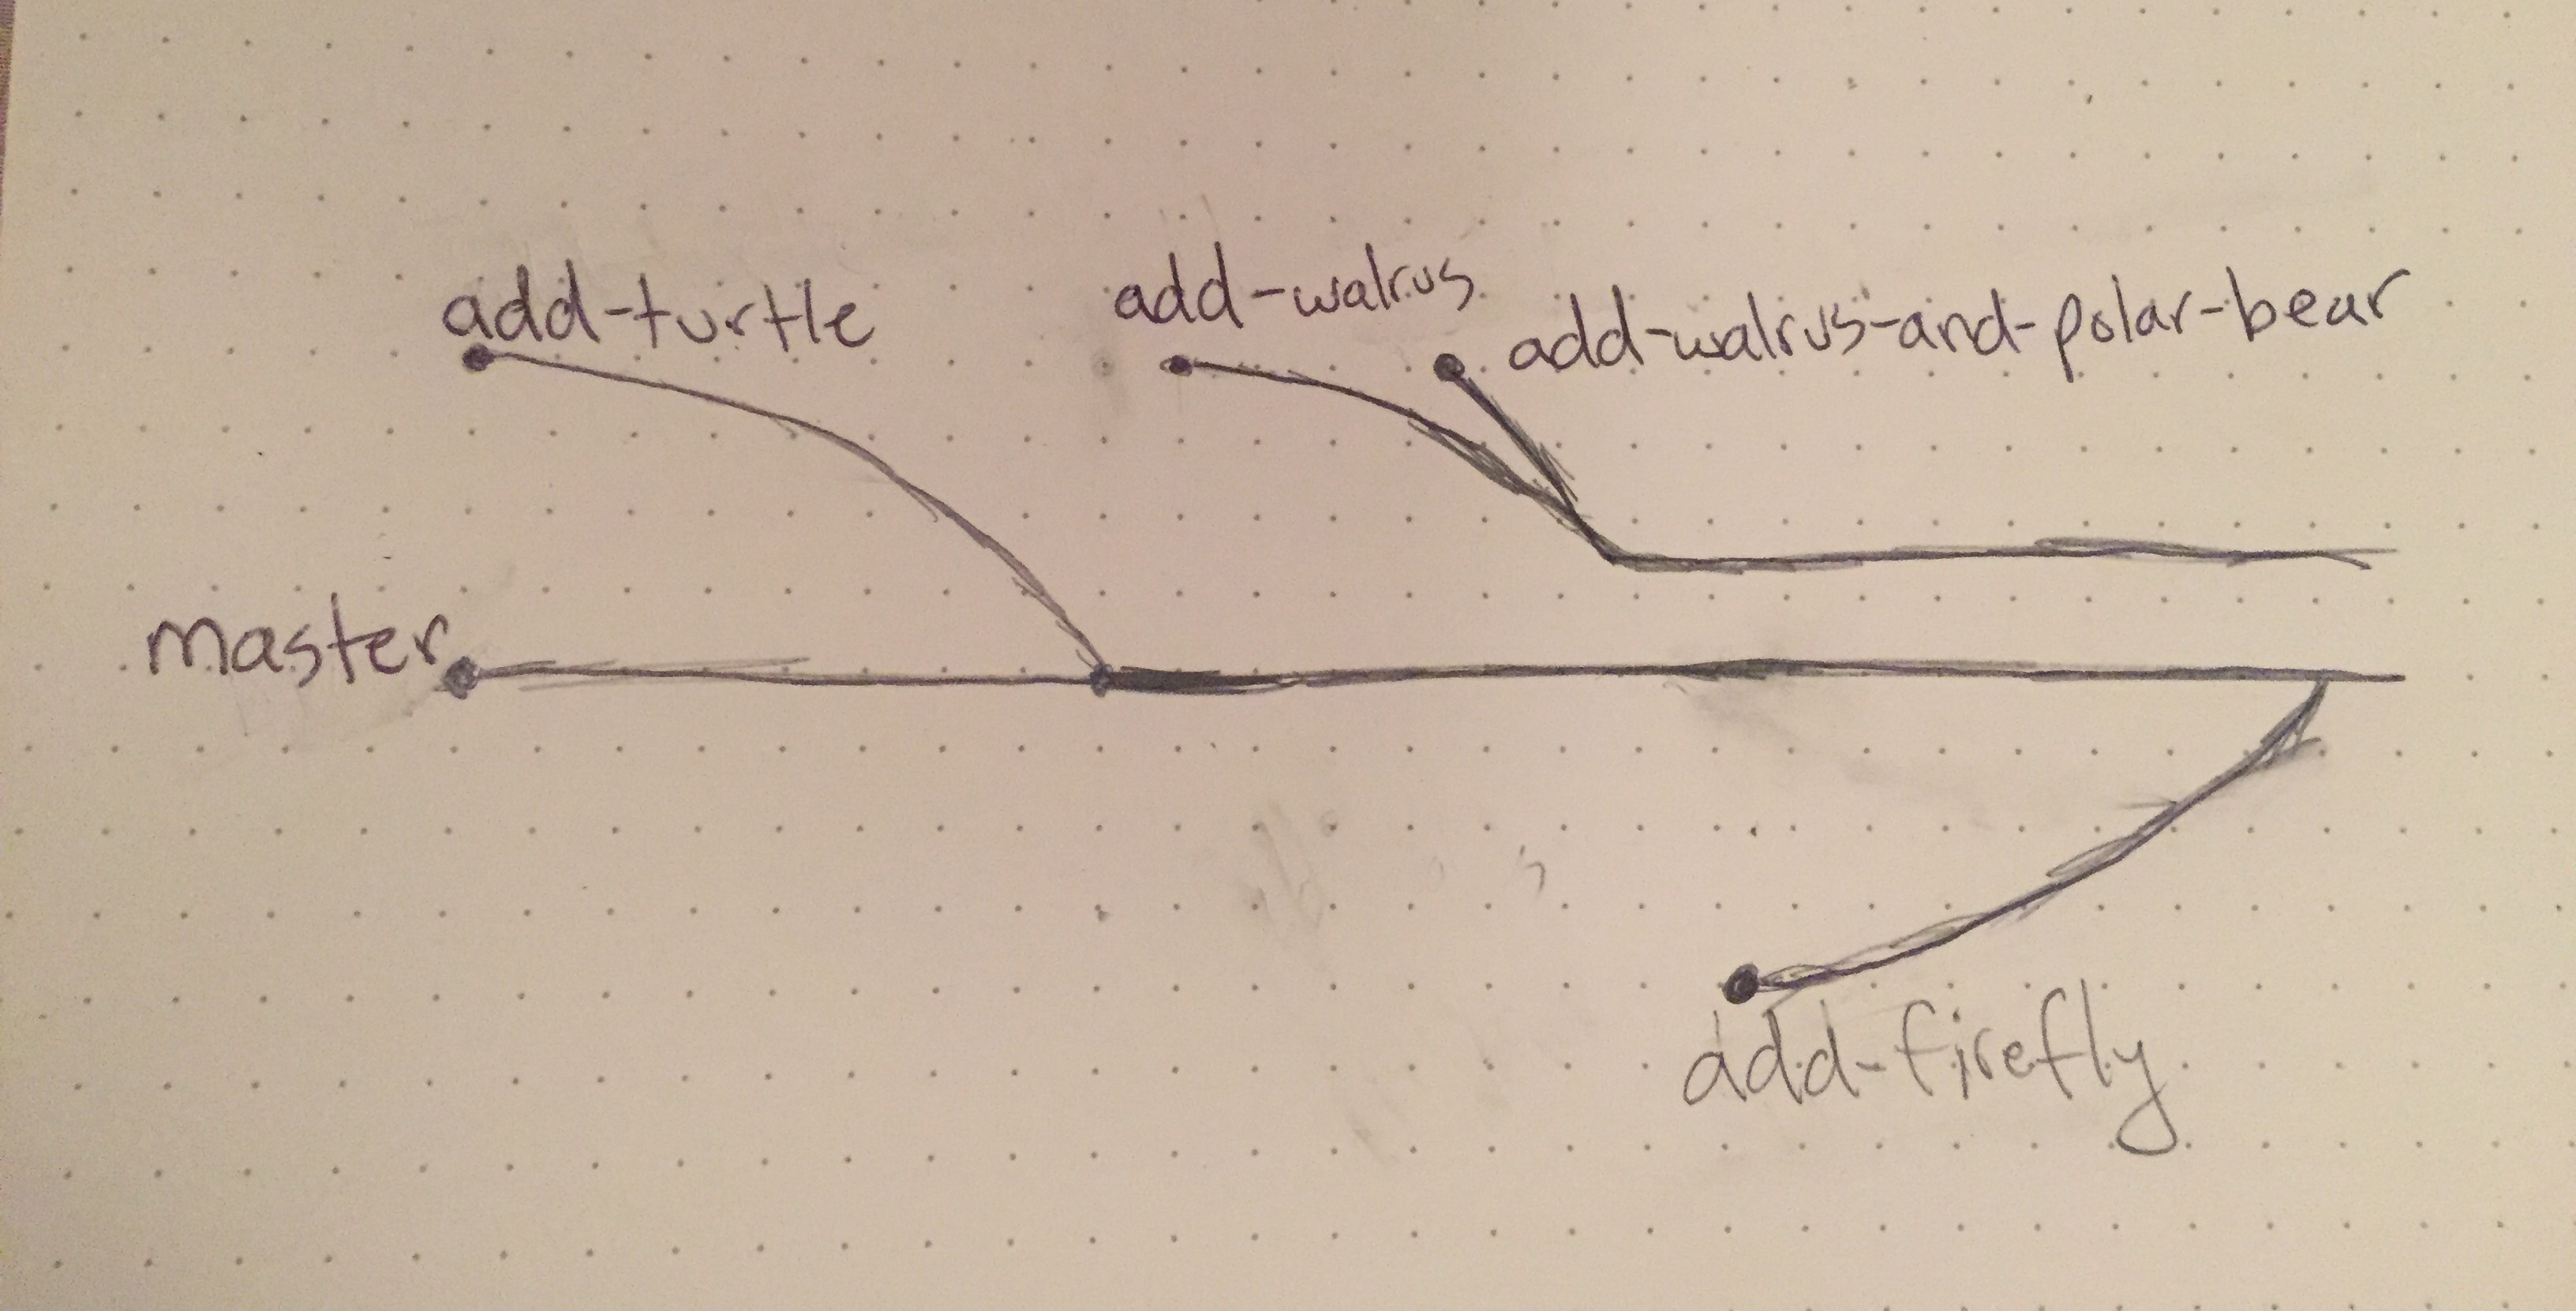 add-turtle
add-walrus
add-walrus-and-polar-bear
master
add-firefly